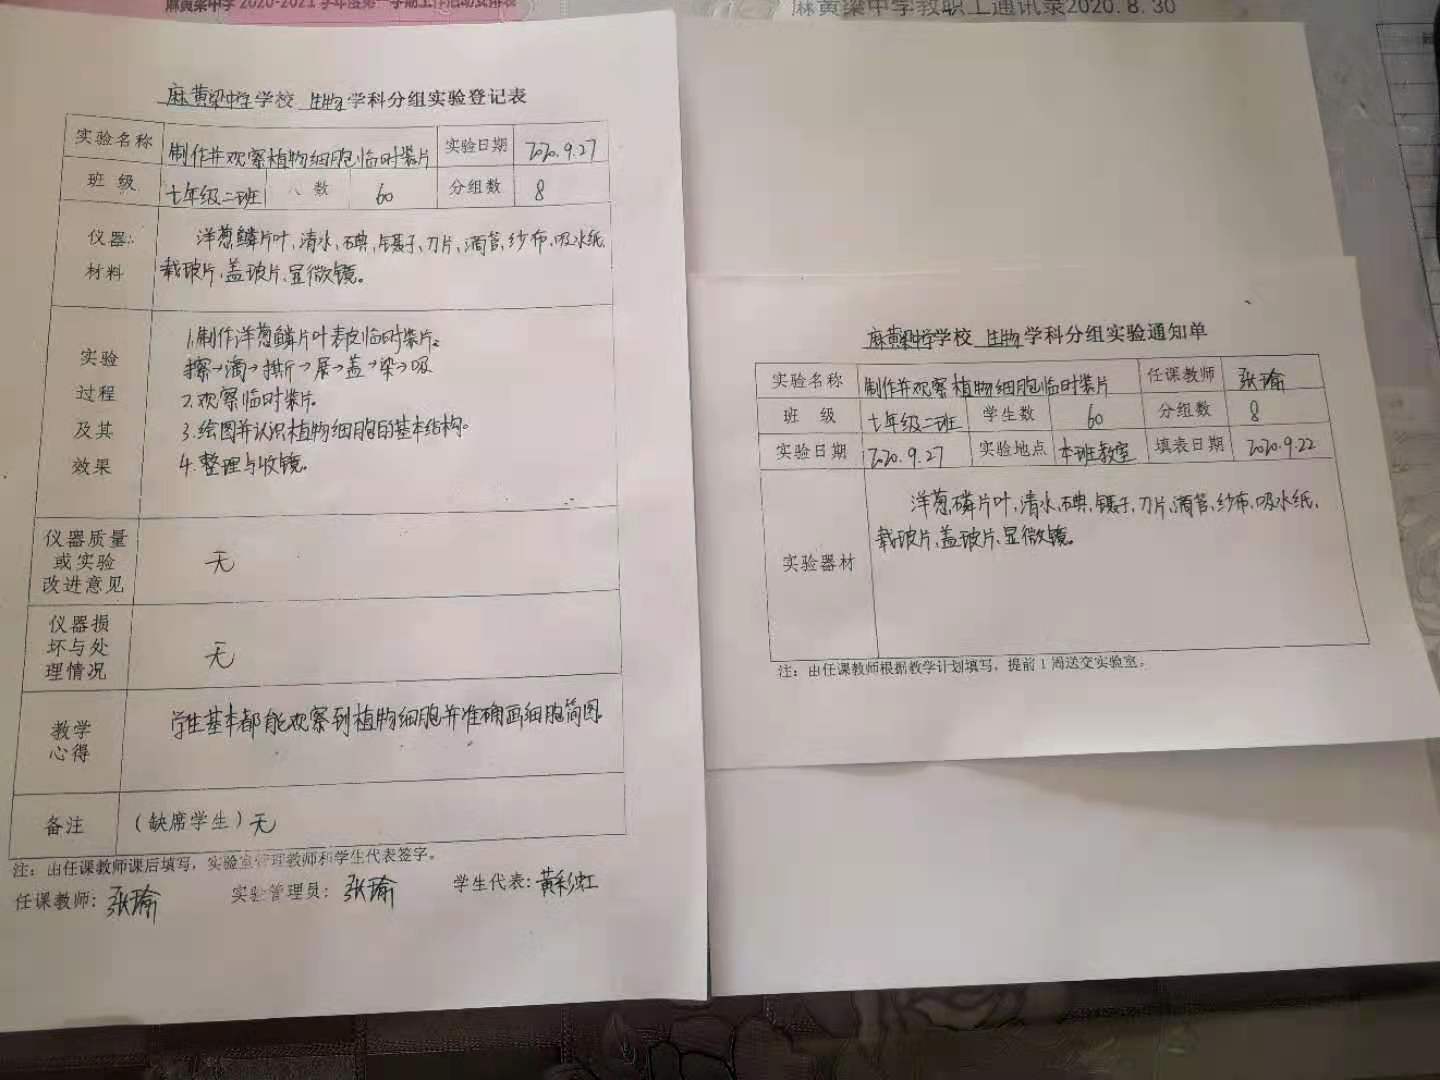 麻黄梁中学 2020-2021 学年度第一学期工作活动安排表
麻黄梁中学教职工通讯录2020.8.30
麻黄梁中学学校 生物学科分组实验登记表
实验名称 制作并观察植物细胞临时装片 实验日期 2020.9.27
班 级 七年级二班 人数 60 分组数 8
仪器 材料
洋葱鳞片叶,清水,碘,镊子,刀片,滴管,纱布,吸水纸,
载玻片,盖玻片,显微镜。
实验 过程 及其 效果
1.制作洋葱鳞片叶表皮临时装片。
擦→滴→撕→展→盖→染→吸
2.观察临时装片。
3.绘图并认识植物细胞的基本结构。
4.整理与收镜。
仪器质量
或实验 无
改进意见
仪器损
坏与处 无
理情况
教学 心得
学生基本都能观察到植物细胞并准确画细胞简图。
备注 (缺席学生)无
注:由任课教师课后填写,实验室管理教师和学生代表签字。
任课教师:张瑜 实验管理员:张瑜 学生代表:黄彩虹
麻黄梁中学学校 生物学科分组实验通知单
实验名称 制作并观察植物细胞临时装片 任课教师 张瑜
班 级 七年级二班 学生数 60 分组数 8
实验日期 2020.9.27 实验地点 本班教室 填表日期 2020.9.22
实验器材
洋葱磷片叶,清水,碘,镊子,刀片,滴管,纱布,吸水纸,
载玻片,盖玻片,显微镜。
注:由任课教师根据教学计划填写,提前1周送交实验室。